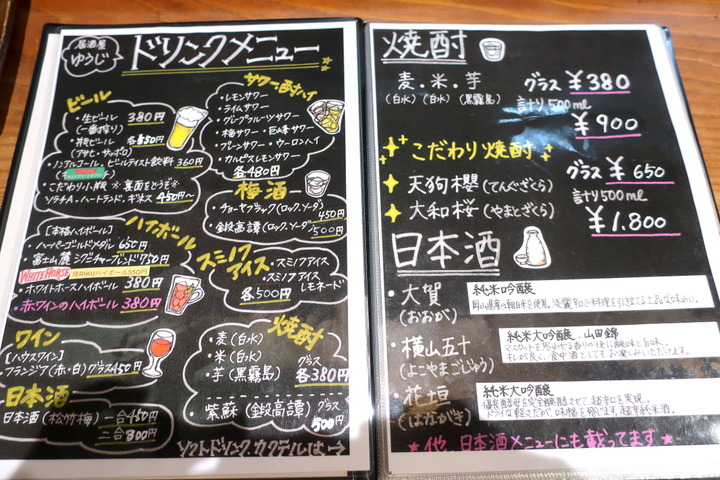 居酒屋
ゆうじ
ドリンクメニュー
ビール
・生ビール 380円
(一番搾り)
・瓶ビール 各550円
(アサヒ・サッポロ)
・ノンアルコール、ビールテイスト飲料 360円
・こだわり小瓶 ※裏面をどうぞ※
ソラチA、ハートランド、ギネス 450円〜
ハイボール
【本格ハイボール】
・ハーパーゴールドメダル 650円
・富士山麓 シグニチャーブレンド 750円
WHITE HORSE
陸RIKUハイボール550円
・ホワイトホースハイボール 380円
・赤ワインのハイボール 380円
ワイン
【ハウスワイン】
フランジア(赤・白)グラス450円
日本酒
日本酒(松竹梅) 一合450円
二合800円
サワー・酎ハイ
・レモンサワー
・ライムサワー
・グレープフルーツサワー
・梅サワー ・巨峰サワー
・プーンサワー ・ウーロンハイ
・カルピスレモンサワー
各480円
梅酒
・チョーヤブラック(ロック、ソーダ)
450円
・鍛高譚(ロック、ソーダ)
500円
スミノフ
アイス
・スミノフアイス
・スミノフアイス
レモネード
各500円
焼酎
・麦(白水)
・米(白水)
・芋(黒霧島)
グラス
各380円
・紫蘇(鍛高譚)グラス
500円
ソフトドリンク、カクテルは→
焼酎
麦・米・芋
(白水)(白水)(黒霧島)
グラス ¥380
計り500ml
¥900
こだわり焼酎
天狗櫻(てんぐざくら)
大和桜(やまとざくら)
グラス ¥650
計り500ml
¥1.800
日本酒
・大賀
(おおが)
純米吟醸
・横山五十
(よこやまごじゅう)
純米大吟醸、山田錦
・花垣
(はながき)
純米大吟醸
★他、日本酒メニューにも載ってます★